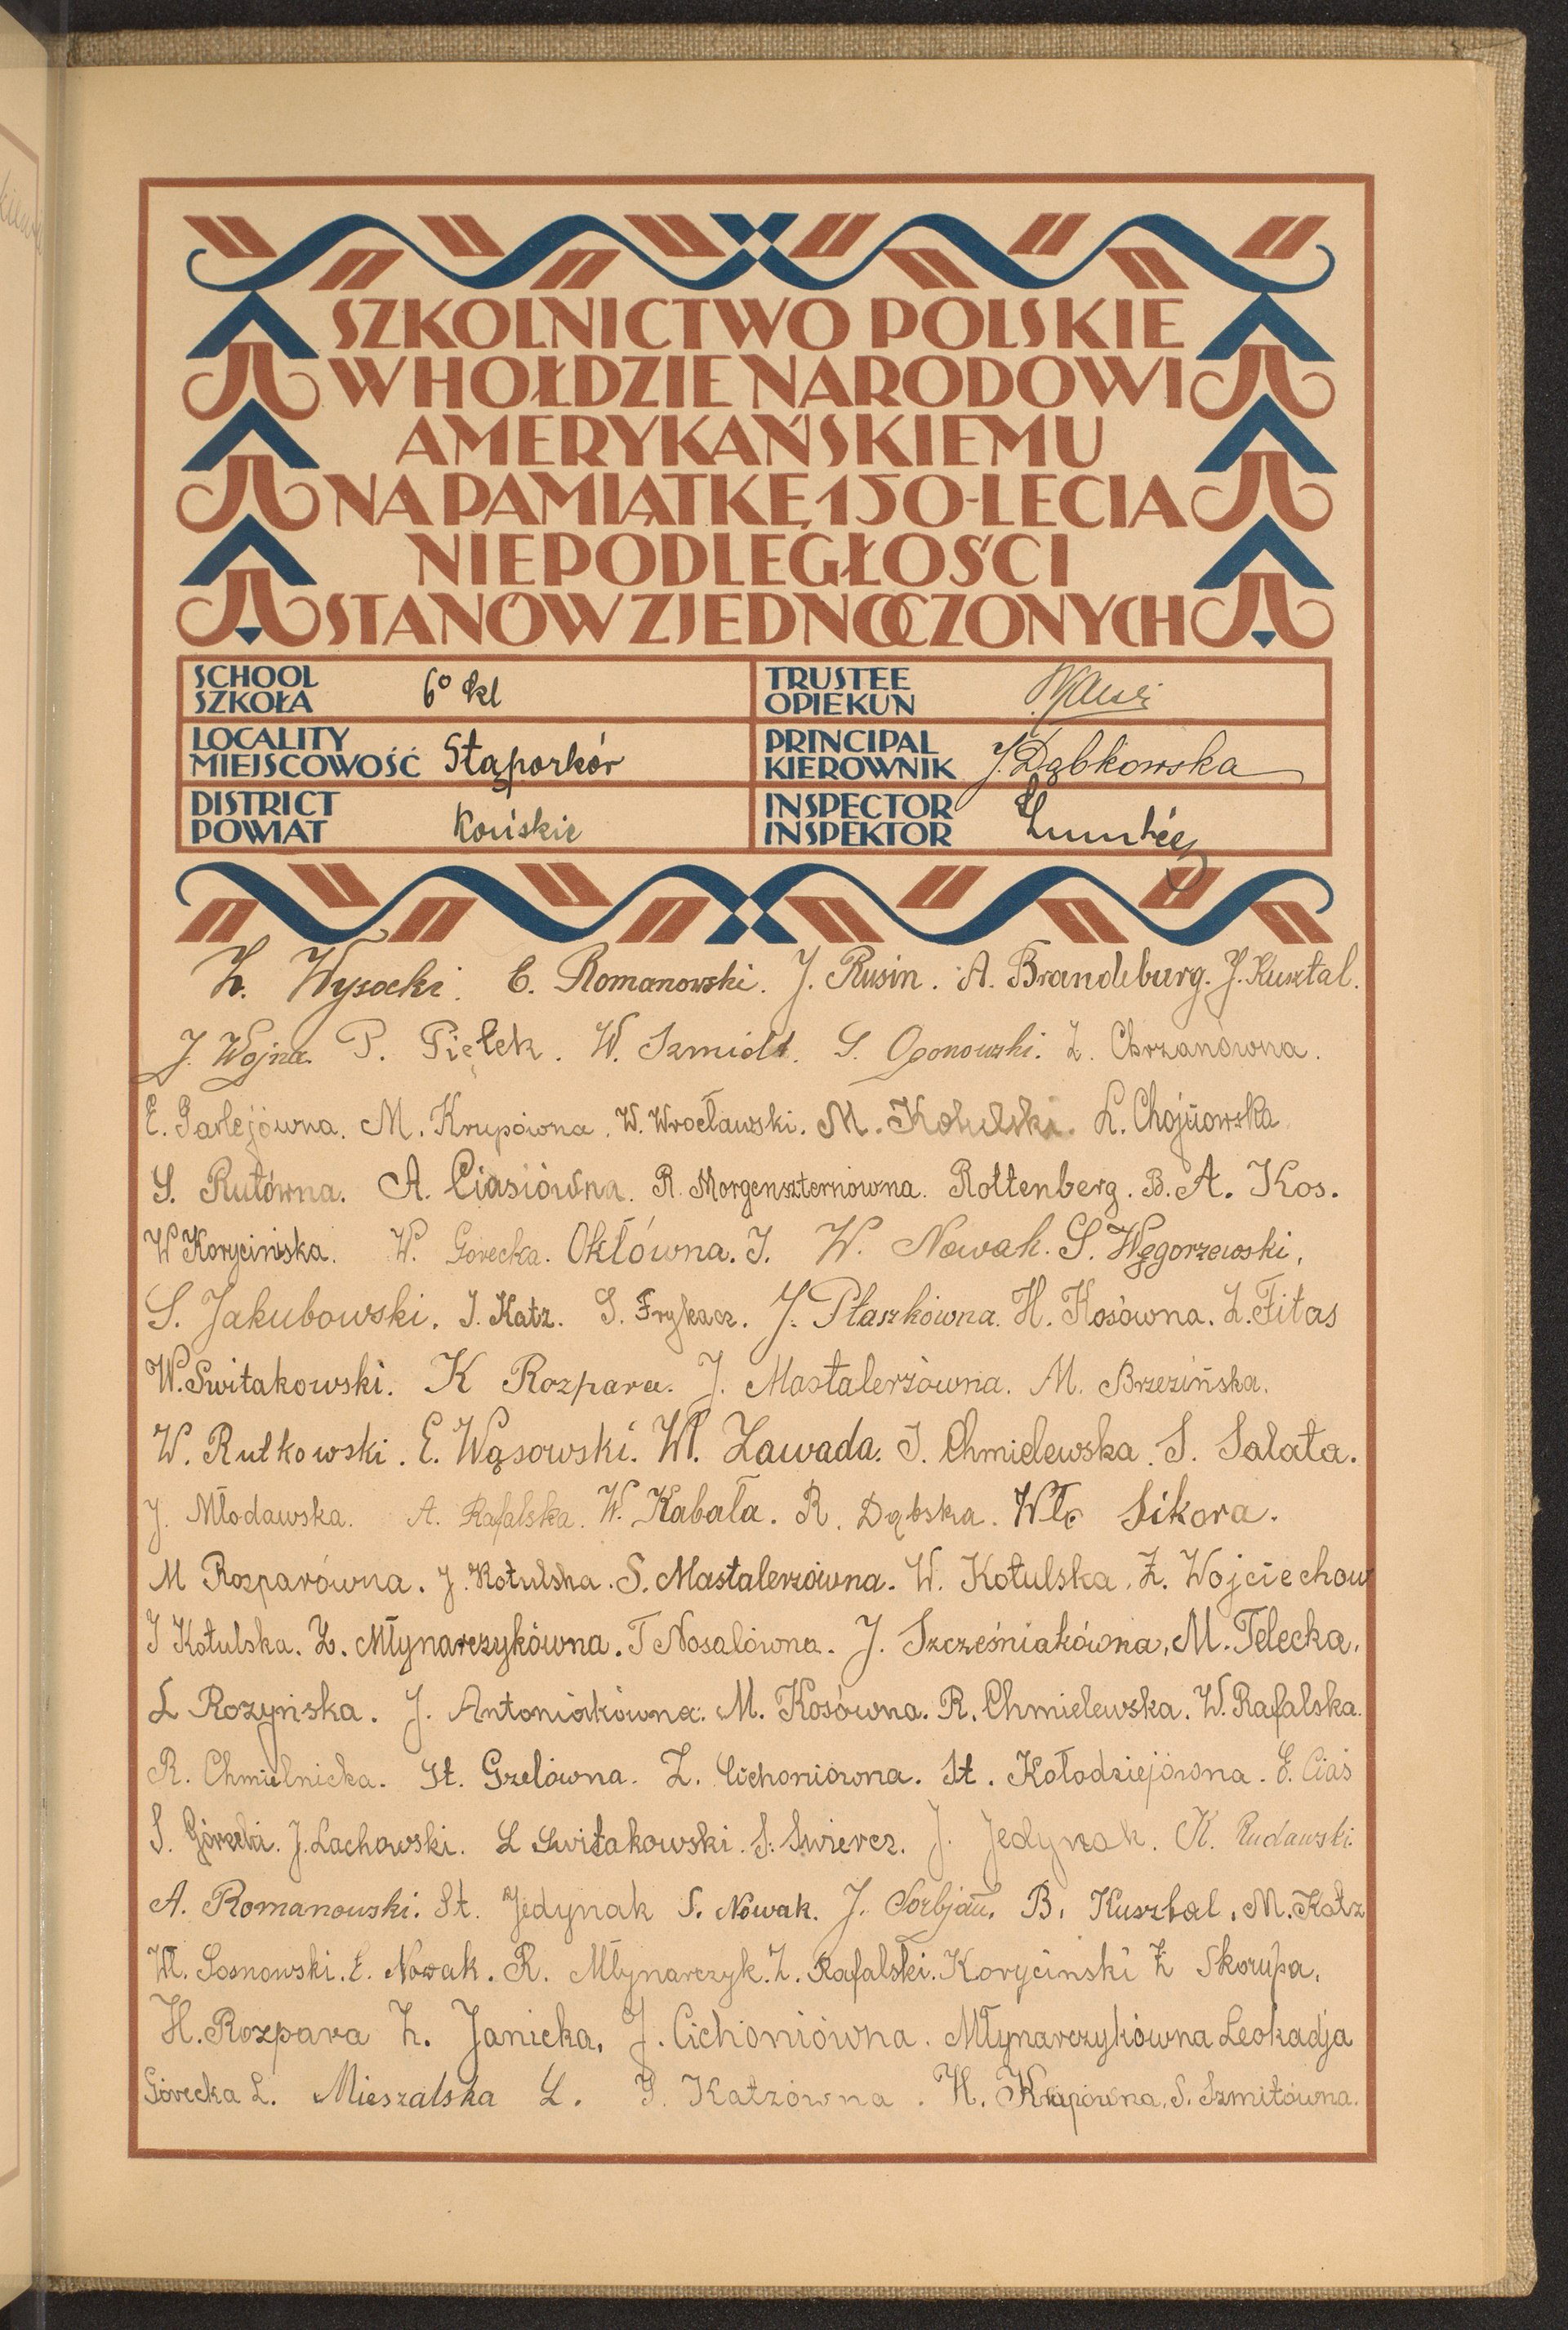 SZKOLNICTWO POLSKIE
W HOŁDZIE NARODOWI
AMERYKAŃSKIEMU
NA PAMIĄTKĘ 150-LECIA
NIEPODLEGŁOŚCI
STANÓW ZJEDNOCZONYCH
SCHOOL
SZKOŁA 6º kl
TRUSTEE
OPIEKUN
LOCALITY
MIEJSCOWOŚĆ Stąporków
PRINCIPAL
KIEROWNIK J. Dąbkowska
DISTRICT
POWIAT Końskie
INSPECTOR
INSPEKTOR
Z. Wysocki. E. Romanowski. J. Rusin. A. Brandeburg. J. Kusztal.
J. Wojna. P. Piętek. W. Szmidt. S. Ogonowski. Z. Chrzanówna.
E. Garlejówna. M. Krupówna. W. Wrocławski. M. Kotulski. L. Chojnowska
S. Rutówna. A. Ciasiówna. R. Morgenszternówna. Rottenberg. B. A. Kos.
W Korycińska. W. Górecka. Okłówna. J. W. Nowak. S. Węgorzewski,
S. Jakubowski. J. Katz. S. Frykacz. J. Płaszkówna. H. Kosówna. Z. Fitas
W. Switakowski. K Rozpara. J. Mastalerzówna. M. Brzezińska.
W. Rutkowski. E. Wąsowski. Wł. Zawada. J. Chmielewska. S. Salata.
J. Młodawska. A. Rafalska. W. Kabała. R. Dąbska. Wł. Sikora.
M Rozparówna. J. Kotulska. S. Mastalerzówna. W. Kotulska. Z. Wojciechow
J Kotulska. Z. Młynarczykówna. T Nosalówna. J. Szcześniakówna, M. Telecka.
L Rozyńska. J. Antoniakówna. M. Kosówna. R. Chmielewska. W. Rafalska.
R. Chmielnicka. St. Grelówna. Z. Cichoniówna. St. Kołodziejówna. E. Ciaś
S. Górecki. J. Lachowski. L Switakowski. S. Swiercz. J. Jedynak. K. Rudawski
A. Romanowski. St. Jedynak S. Nowak. J. Sorbjan. B. Kusztal. M. Katz
Wł. Sosnowski. E. Nowak. R. Młynarczyk. Z. Rafalski. Koryciński Z Skorupa.
H. Rozpara Z. Janicka, J. Cichoniówna. Młynarczykówna Leokadja
Górecka L. Mieszalska L. G. Katzówna. H. Krupówna. S. Szmitówna.